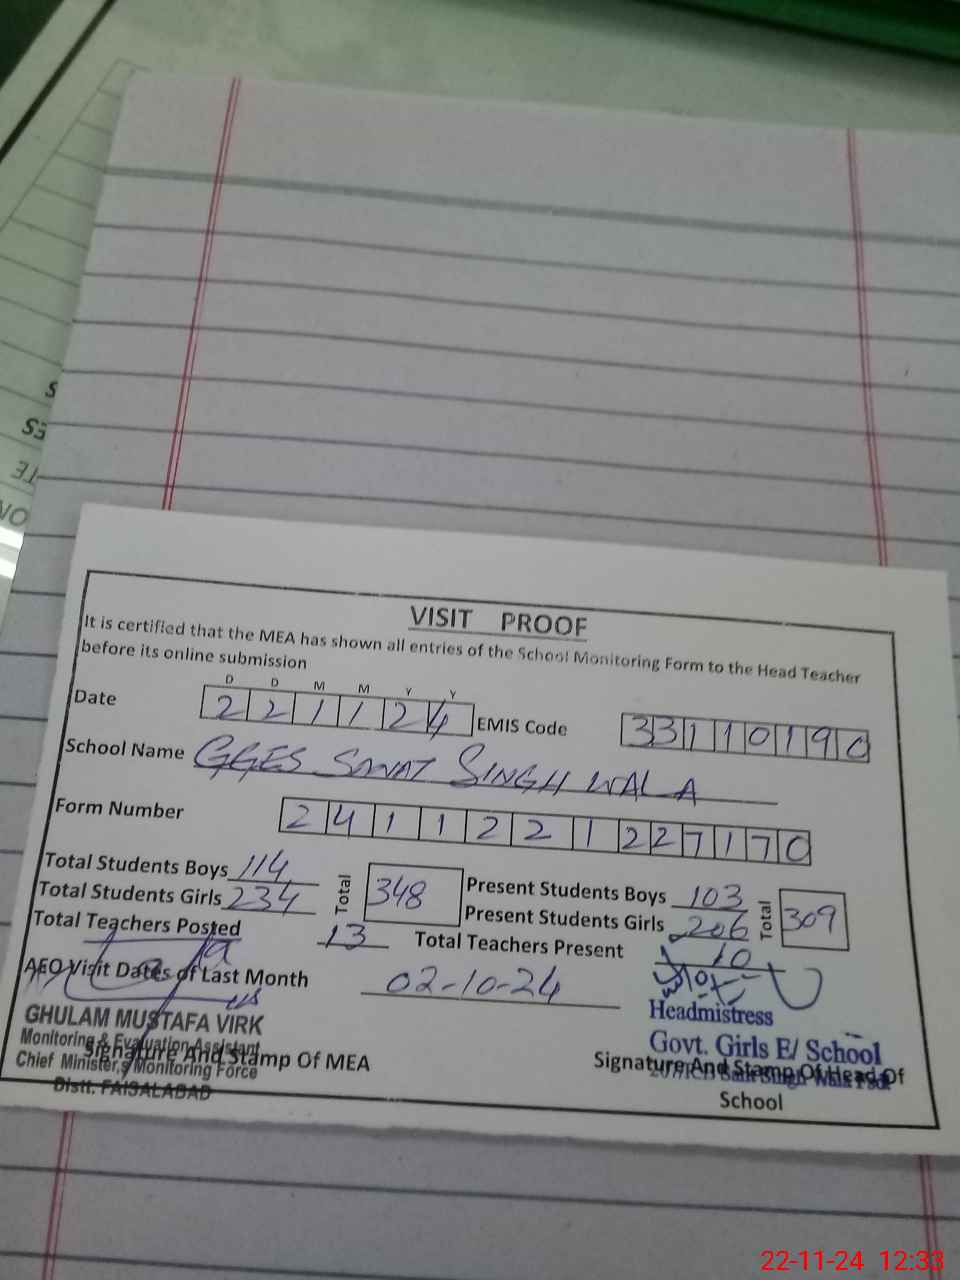 S
ES
TE
ON
VISIT PROOF
It is certified that the MEA has shown all entries of the School Monitoring Form to the Head Teacher
before its online submission
D D M M Y Y
Date 2 2 1 1 2 4 EMIS Code 3 3 1 1 0 1 9 0
School Name GGES SANAT SINGH WALA
Form Number 2 4 1 1 2 2 1 2 2 7 1 7 0
Total Students Boys 114 Total 348 Present Students Boys 103 Total 309
Total Students Girls 234 Present Students Girls 206
Total Teachers Posted 13 Total Teachers Present 10
AEO Visit Dates of Last Month 02-10-24
GHULAM MUSTAFA VIRK
Monitoring & Evaluation Assistant
Chief Minister,s Monitoring Force
Distt. FAISALABAD
Signature And Stamp Of MEA
Headmistress
Govt. Girls E/ School
Signature And Stamp Of Head Of
School
22-11-24 12:33